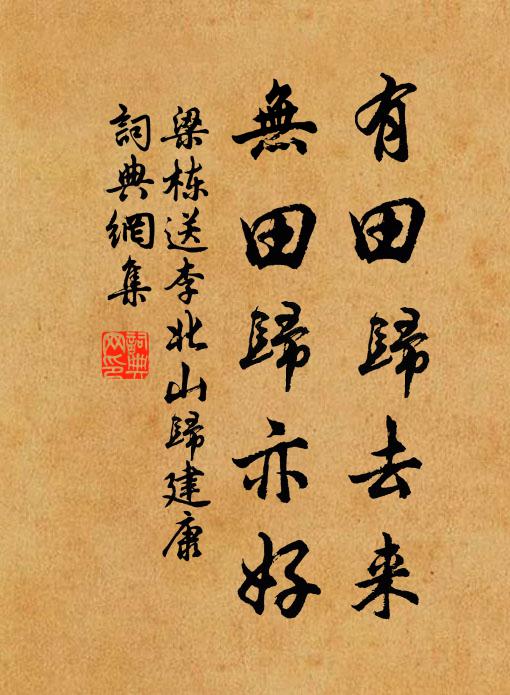 有田歸去来
無田歸亦好
梁栋送李北山歸建康
詞典網集
詞典
网印